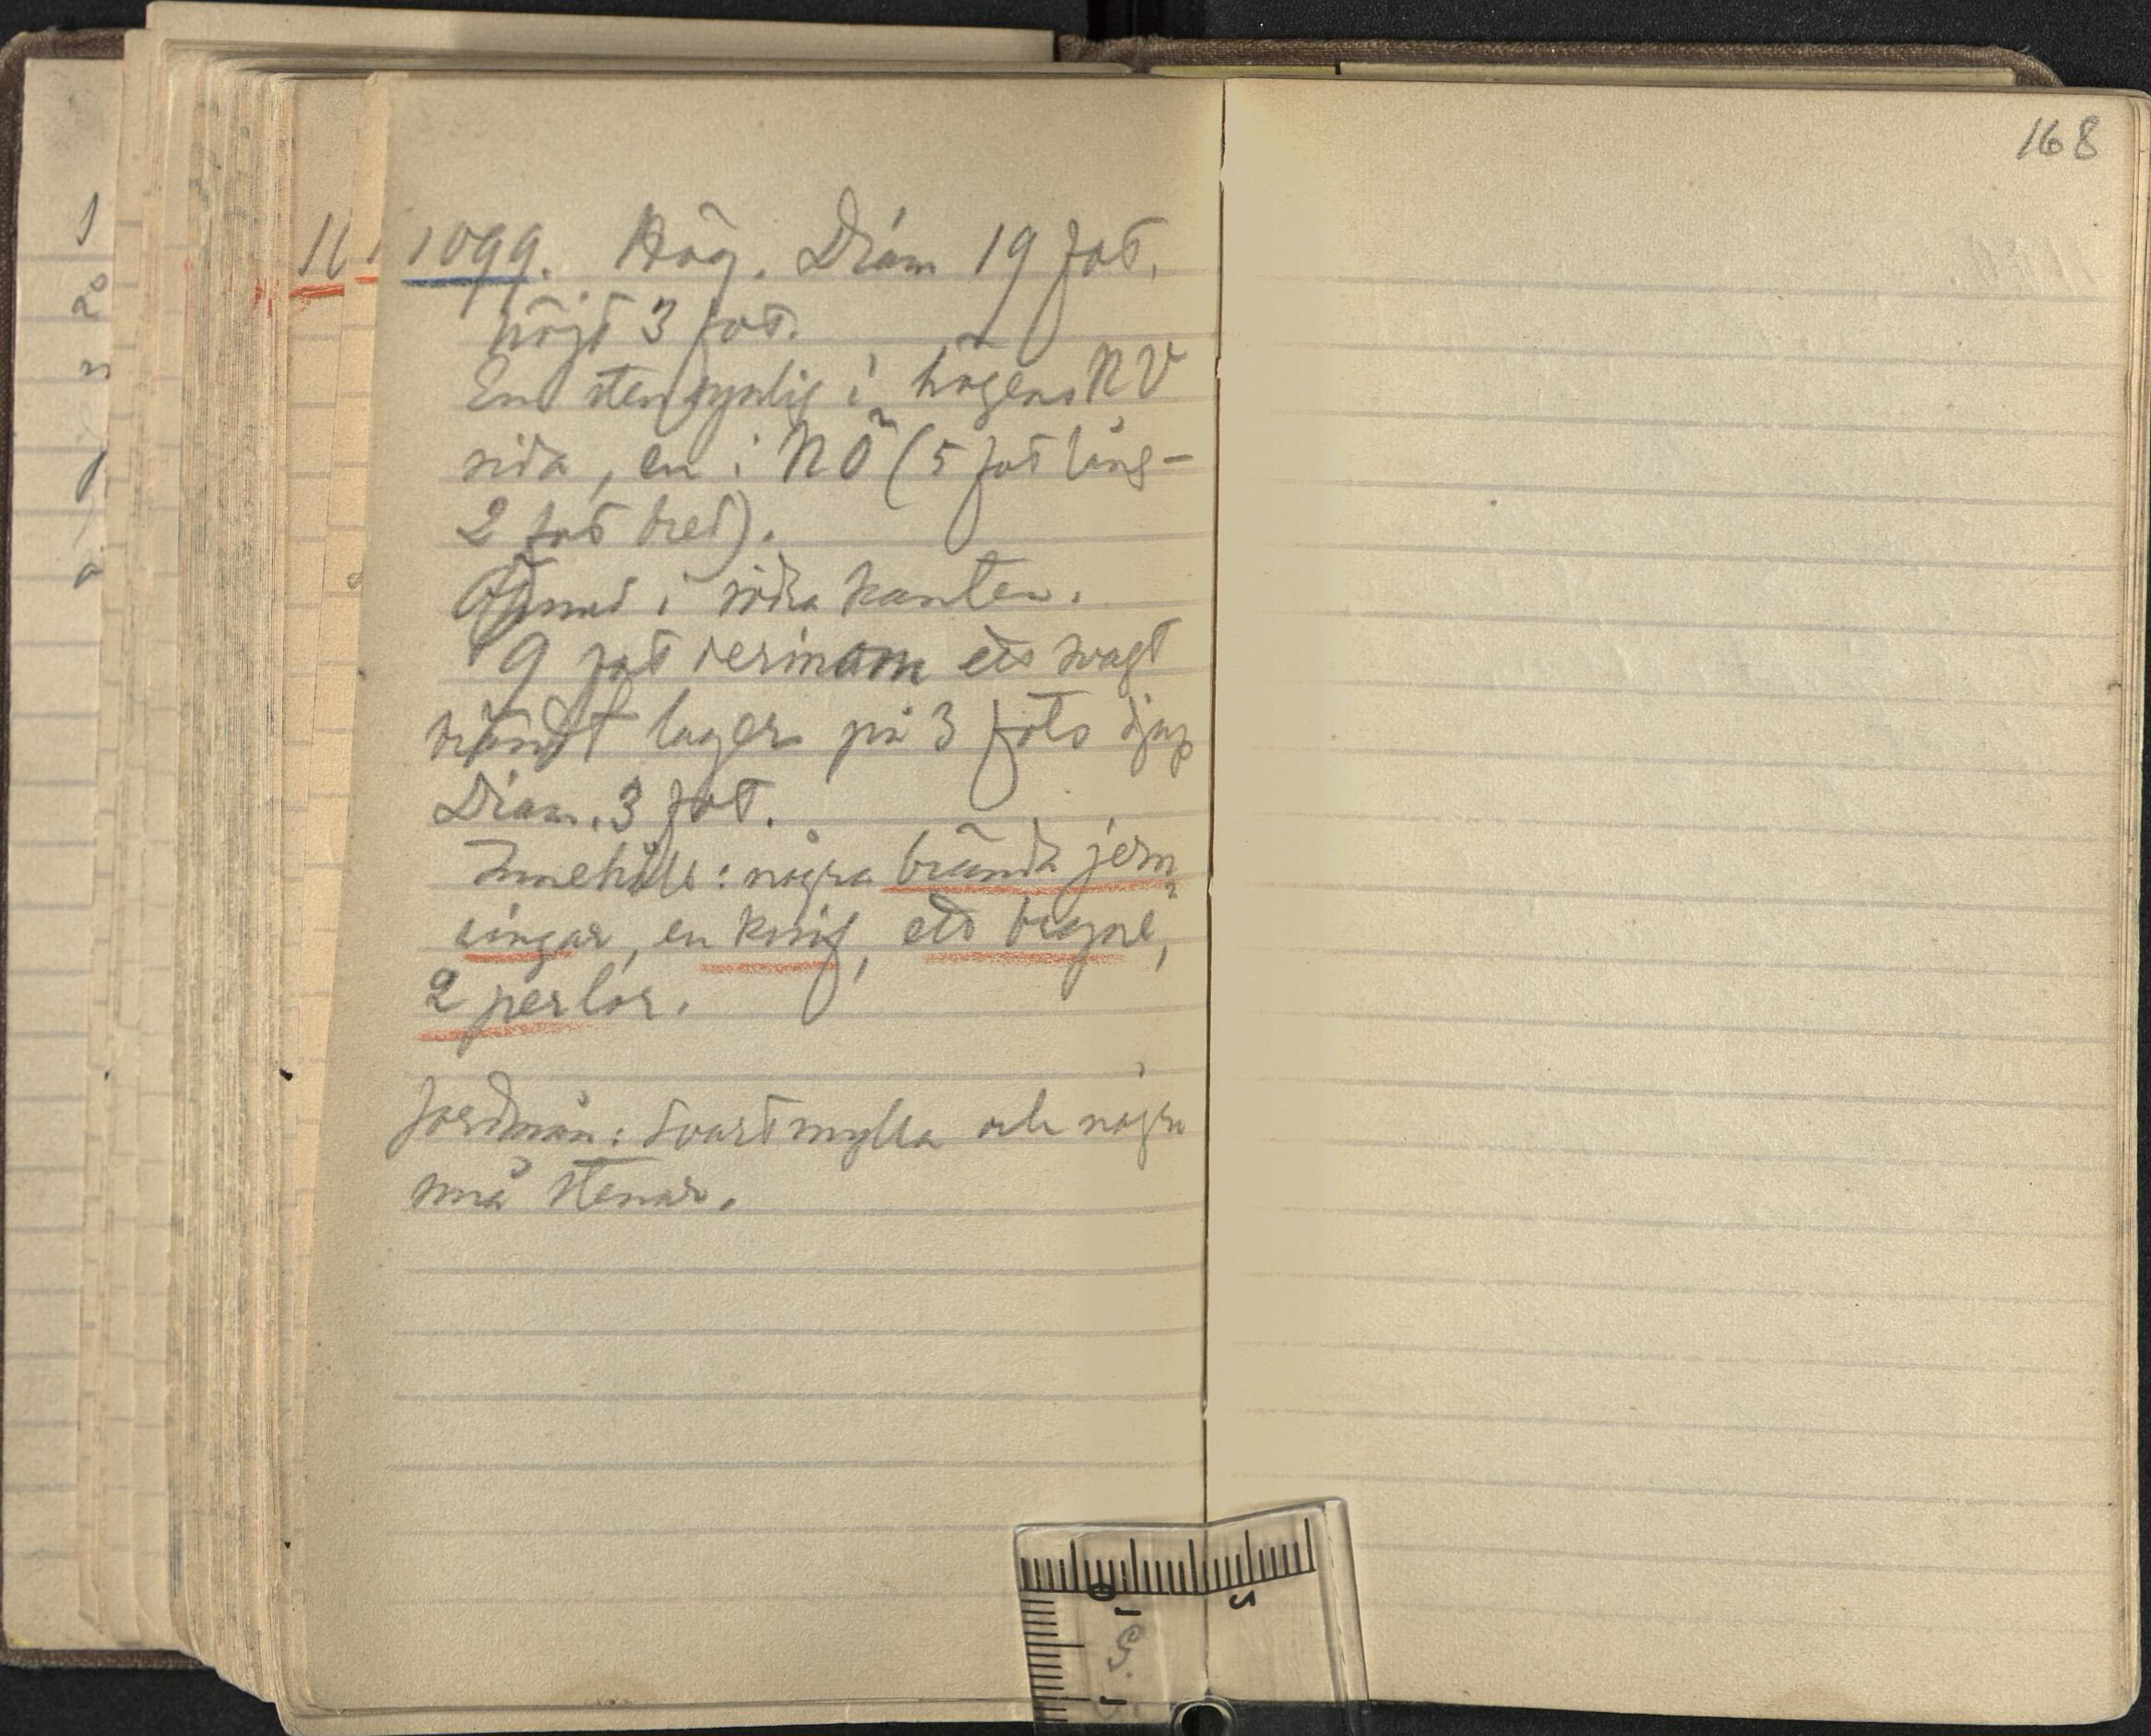 168
1099. Hög. Diam 19 fot.
höjd 3 fot.
En sten synlig i högens NV
sida, en i NÖ (5 fot lång-
2 fot bred).
Öppnad i södra kanten.
9 fot derinom ett svagt
brändt lager på 3 fots djup
Diam. 3 fot.
Innehöll: några brända jern
ringar, en knif, ett bryne,
2 perlor.
Jordmån: Svartmylla och några
små stenar.